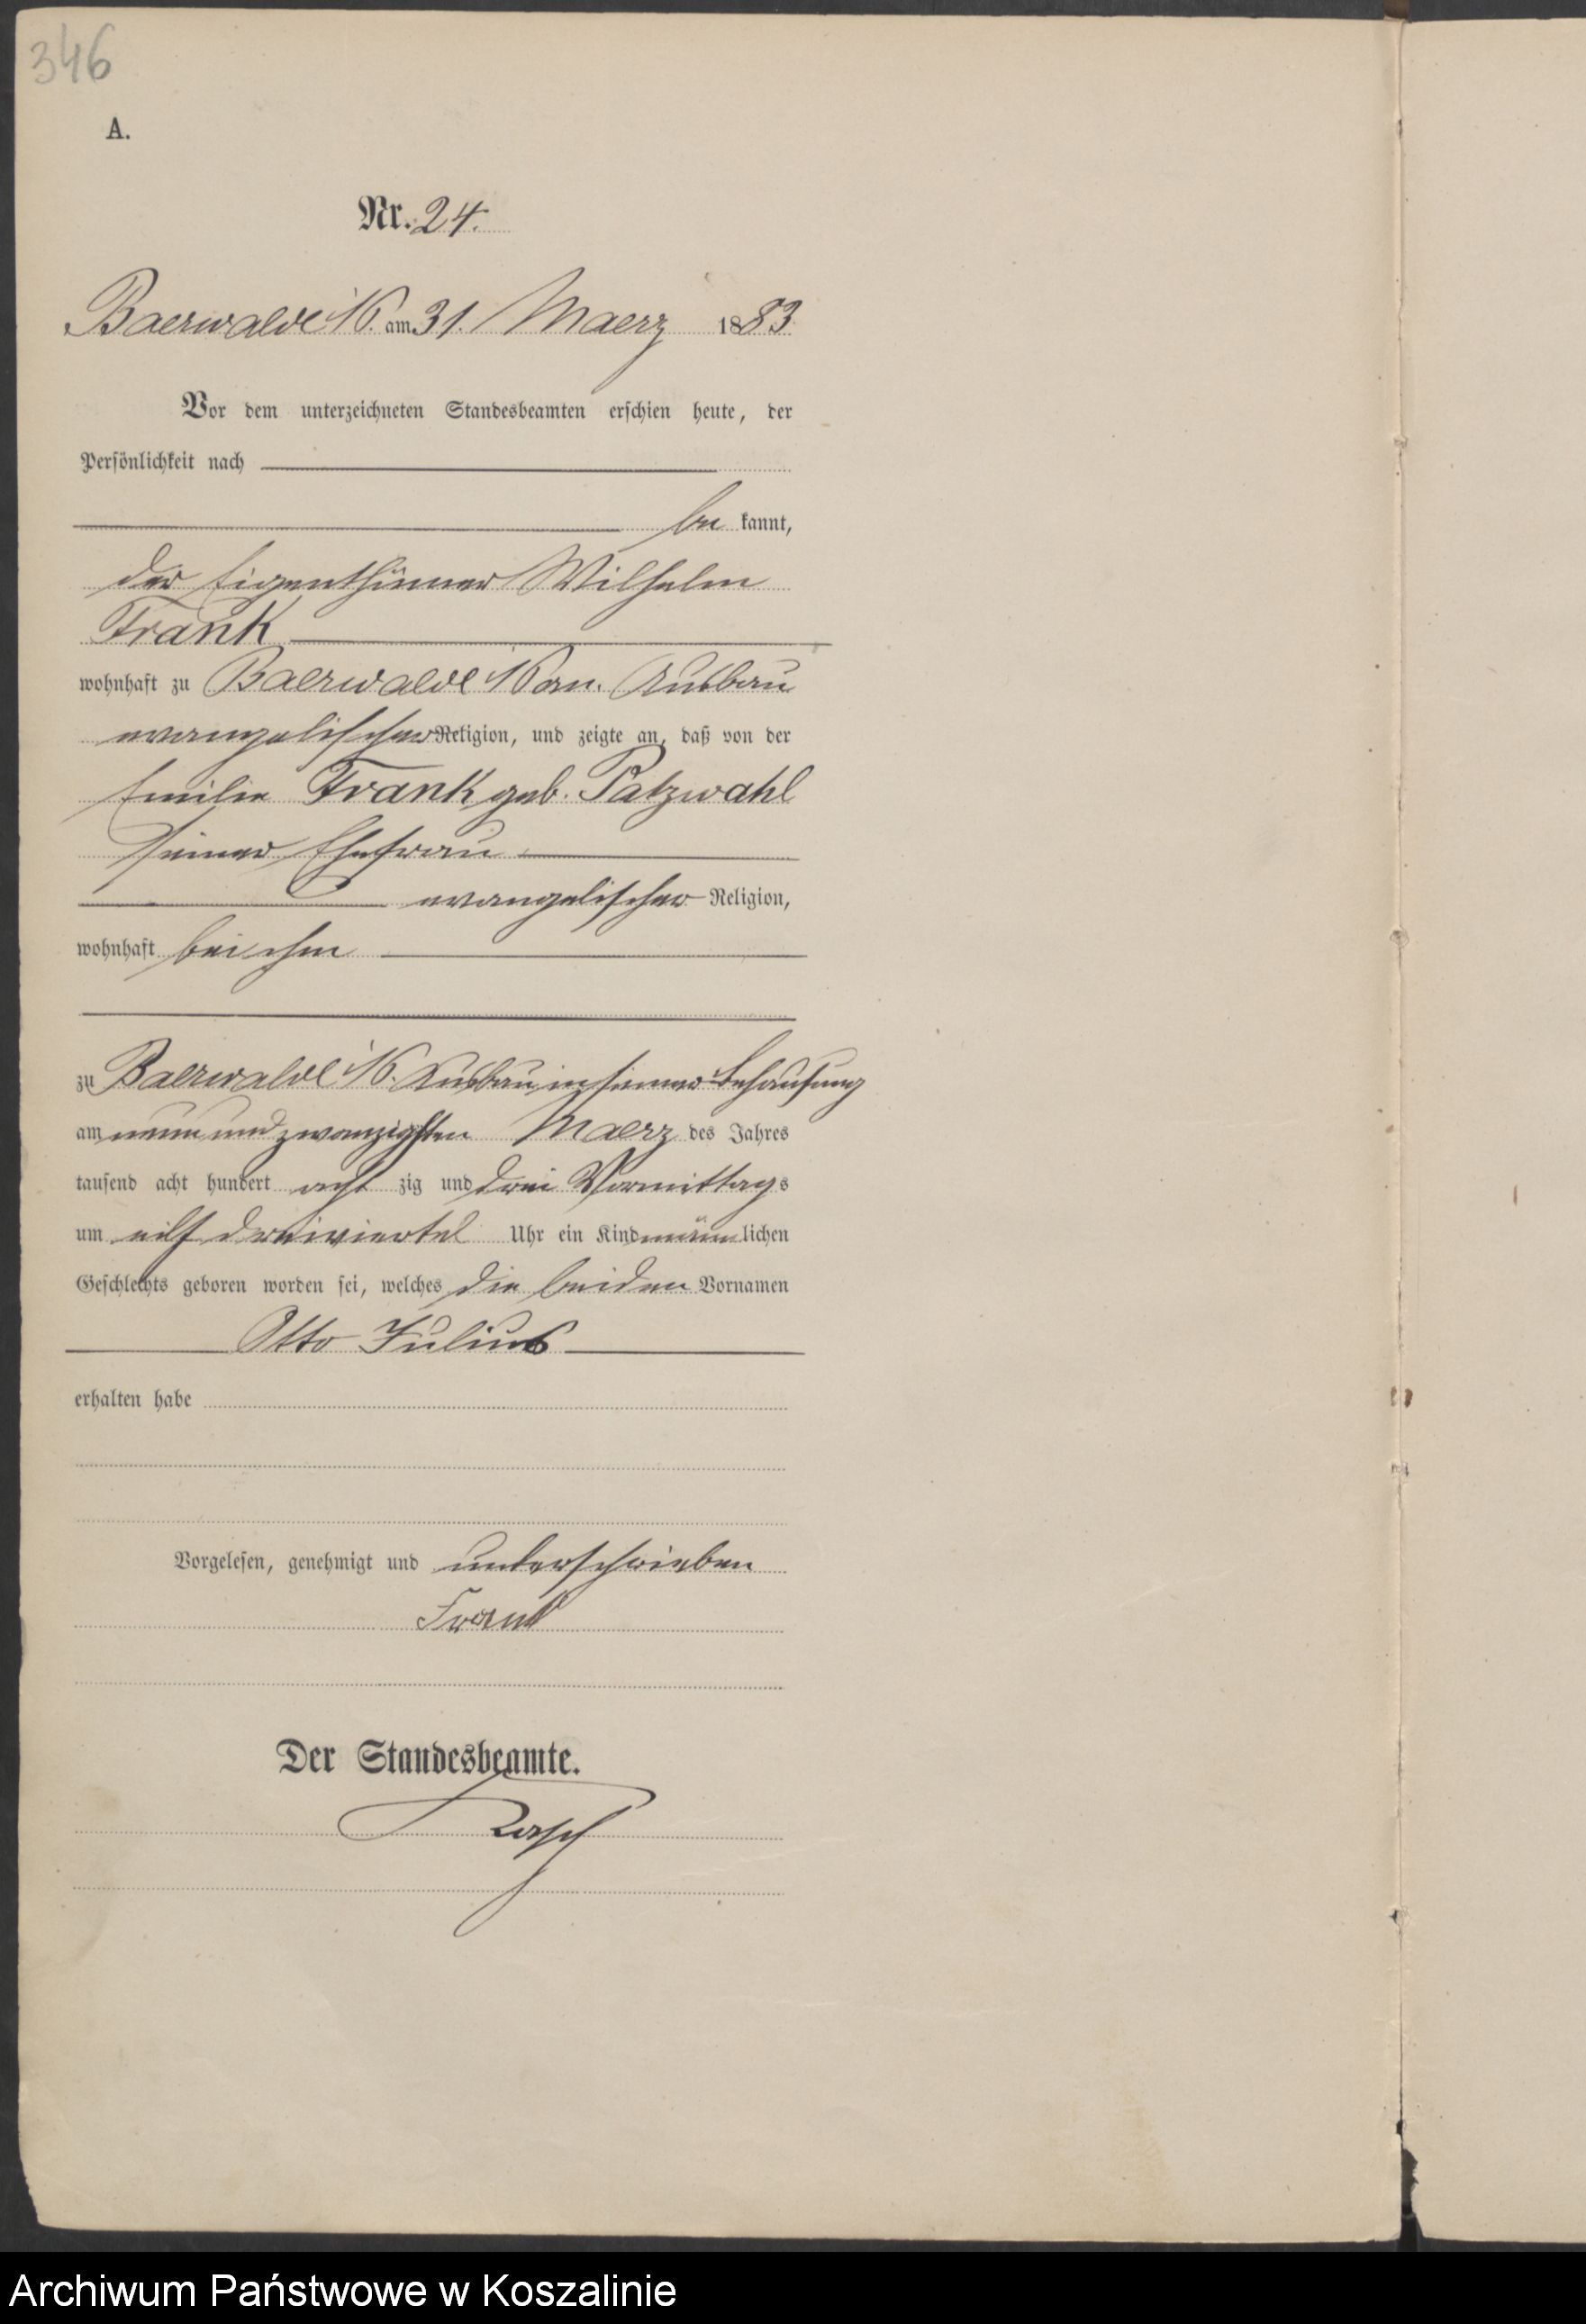 346
A.
Nr. 24.
Baerwalde am 31. Maerz 1883
Vor dem unterzeichneten Standesbeamten erschien heute, der
Persönlichkeit nach
be kannt,
der Eigenthümer Wilhelm
Frank
wohnhaft zu Baerwalde Ausbau
evangelischer Religion, und zeigte an, daß von der
Emilie Frank geb. Patzwahl
seiner Ehefrau
evangelischer Religion,
wohnhaft bei ihm
zu Baerwalde Ausbau in seiner Behausung
am neun und zwanzigsten Maerz des Jahres
tausend acht hundert acht zig und drei Vormittags
um eilf dreiviertel Uhr ein Kind männlichen
Geschlechts geboren worden sei, welches die beiden Vornamen
Otto Julius
erhalten habe
Vorgelesen, genehmigt und unterschrieben
Frank
Der Standesbeamte.
Archiwum Państwowe w Koszalinie